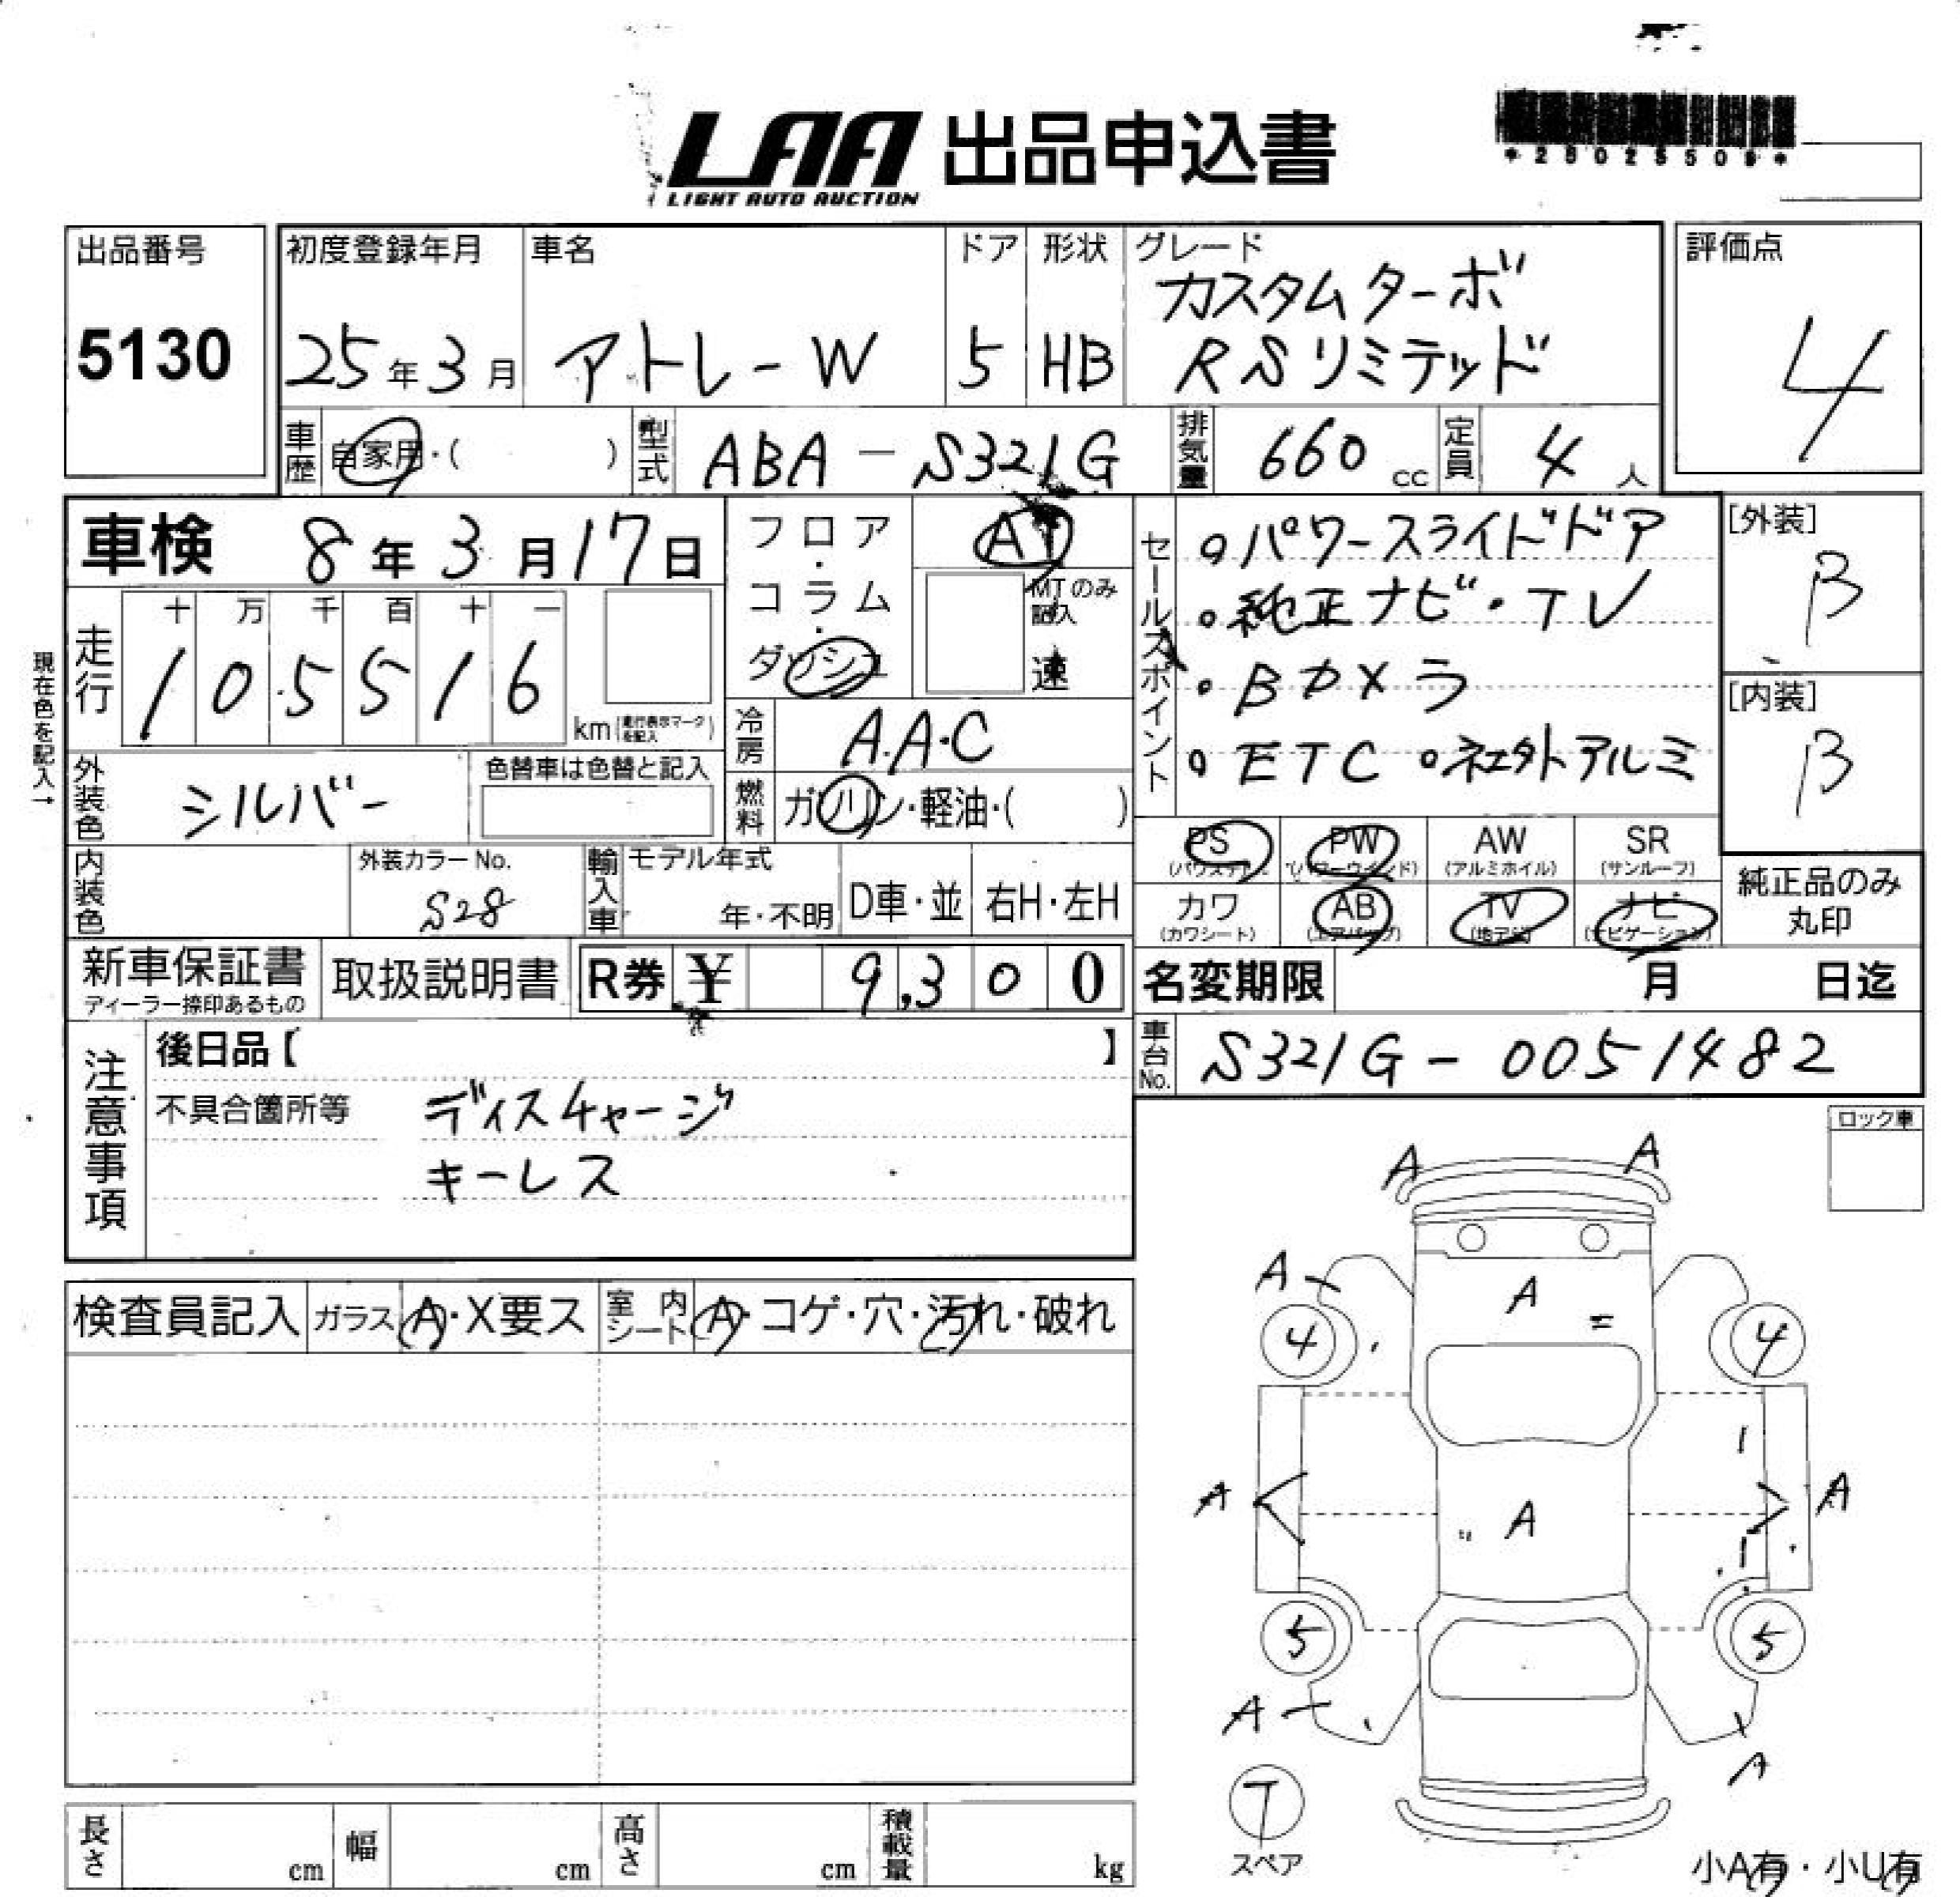 LAA 出品申込書
LIGHT AUTO AUCTION
出品番号
5130
初度登録年月
25年3月
車名
アトレーW
ドア
5
形状
HB
グレード
カスタムターボ
RSリミテッド
評価点
4
車歴
自家用・( )
型式
ABA-S321G
排気量
660 cc
定員
4 人
車検 8年3月17日
走行
十 万 千 百 十 一
105516
km
現在色を記入→
外装色
シルバー
色替車は色替と記入
内装色
外装カラーNo.
S28
輸入車
モデル年式
年・不明
D車・並
右H・左H
フロア・コラム・ダッシュ
AT
MTのみ記入
速
冷房
A.A.C
燃料
ガソリン・軽油・( )
セールスポイント
○パワースライドドア
○純正ナビ・TV
・Bカメラ
○ETC
[外装]
B
[内装]
B
PS
PW
(パワーウインド)
AW
(アルミホイル)
SR
(サンルーフ)
カワ
(カワシート)
AB
(エアバッグ)
TV
ナビ
(ナビゲーション)
純正品のみ
丸印
新車保証書
ディーラー捺印あるもの
取扱説明書
R券 ¥ 9,300
名変期限 月 日迄
車台No.
S321G-0051482
注意事項
後日品【 】
不具合箇所等
ディスチャージ
キーレス
ロック車
検査員記入
ガラス
A・X要ス
室内シート
A・コゲ・穴・汚れ・破れ
A A
A
A
4
4
A
A
A
5
5
A
A
T
スペア
小A有・小U有
長さ cm
幅 cm
高さ cm
積載量 kg